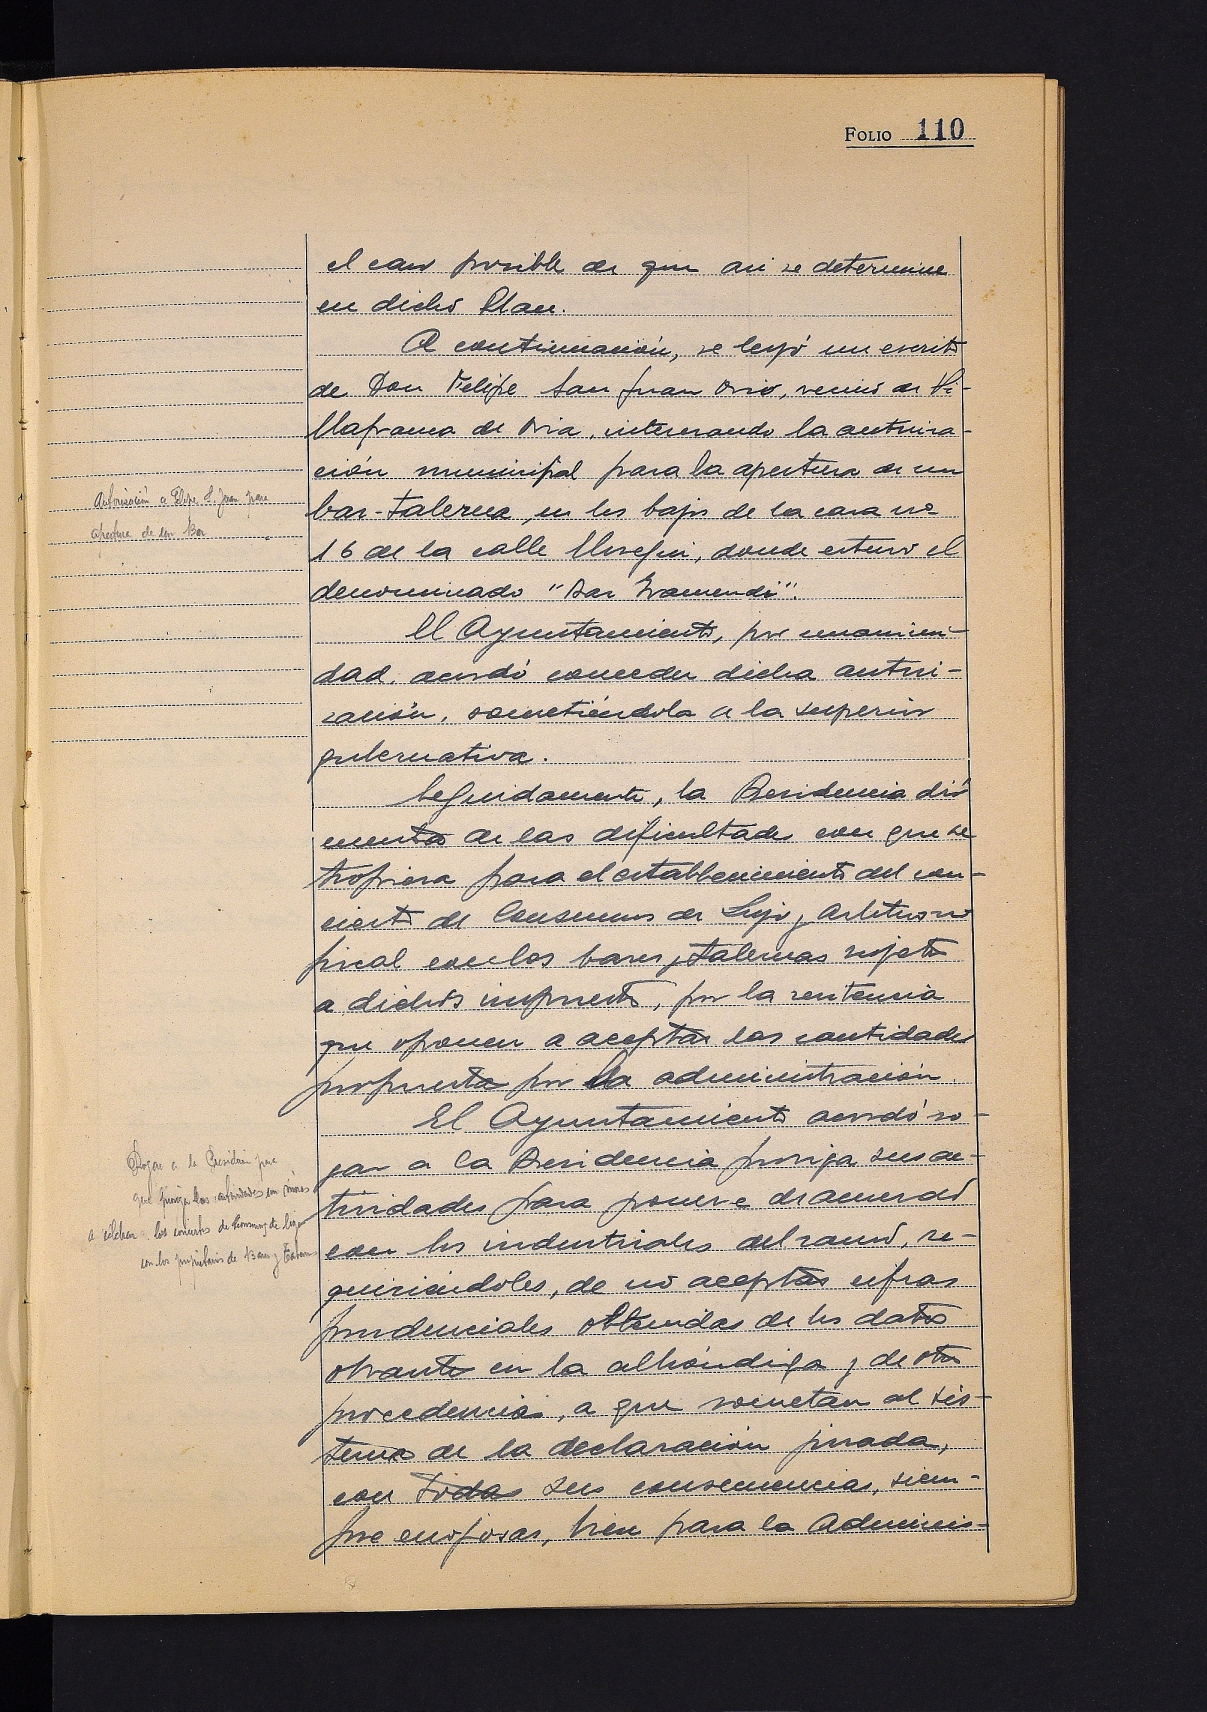 FOLIO 110
el caso posible de que asi se determine
en dicho Plan.
A continuación, se leyó un escrito
de Don Felipe San Juan Orio, vecino de Vi-
llafranca de Oria, interesando la autoriza-
ción municipal para la apertura de un
bar-taberna, en los bajos de la casa nº
16 de la calle Urregui, donde estuvo el
denominado "Bar Izamendi".
El Ayuntamiento, por unanimi-
dad, acordó conceder dicha autori-
zación, sometiéndola a la superior
gubernativa.
Seguidamente, la Presidencia dió
cuenta de las dificultades con que se
tropieza para el establecimiento del con-
cierto de Consumos de Lujo y Arbitrio no
fiscal con los bares y tabernas sujetos
a dichos impuestos, por la
que oponen a aceptar las cantidades
propuestas por la administración.
El Ayuntamiento acordó ro-
gar a la Presidencia prosiga sus ac-
tividades para ponerse de acuerdo
con los industriales del ramo, re-
quiriéndoles, de no aceptar cifras
prudenciales obtenidas de los datos
obrantes en la alhóndiga y de otras
procedencias, a que sometan al sis-
tema de la declaración jurada,
con todas sus consecuencias, siem-
pre enojosas, bien para la Adminis-
Autorización a Felipe S. Juan para
apertura de un Bar
Rogar a la Presidencia para
que prosiga las actividades con miras
a celebrar los conciertos de Consumos de lujo
con los propietarios de Bares y Tabernas